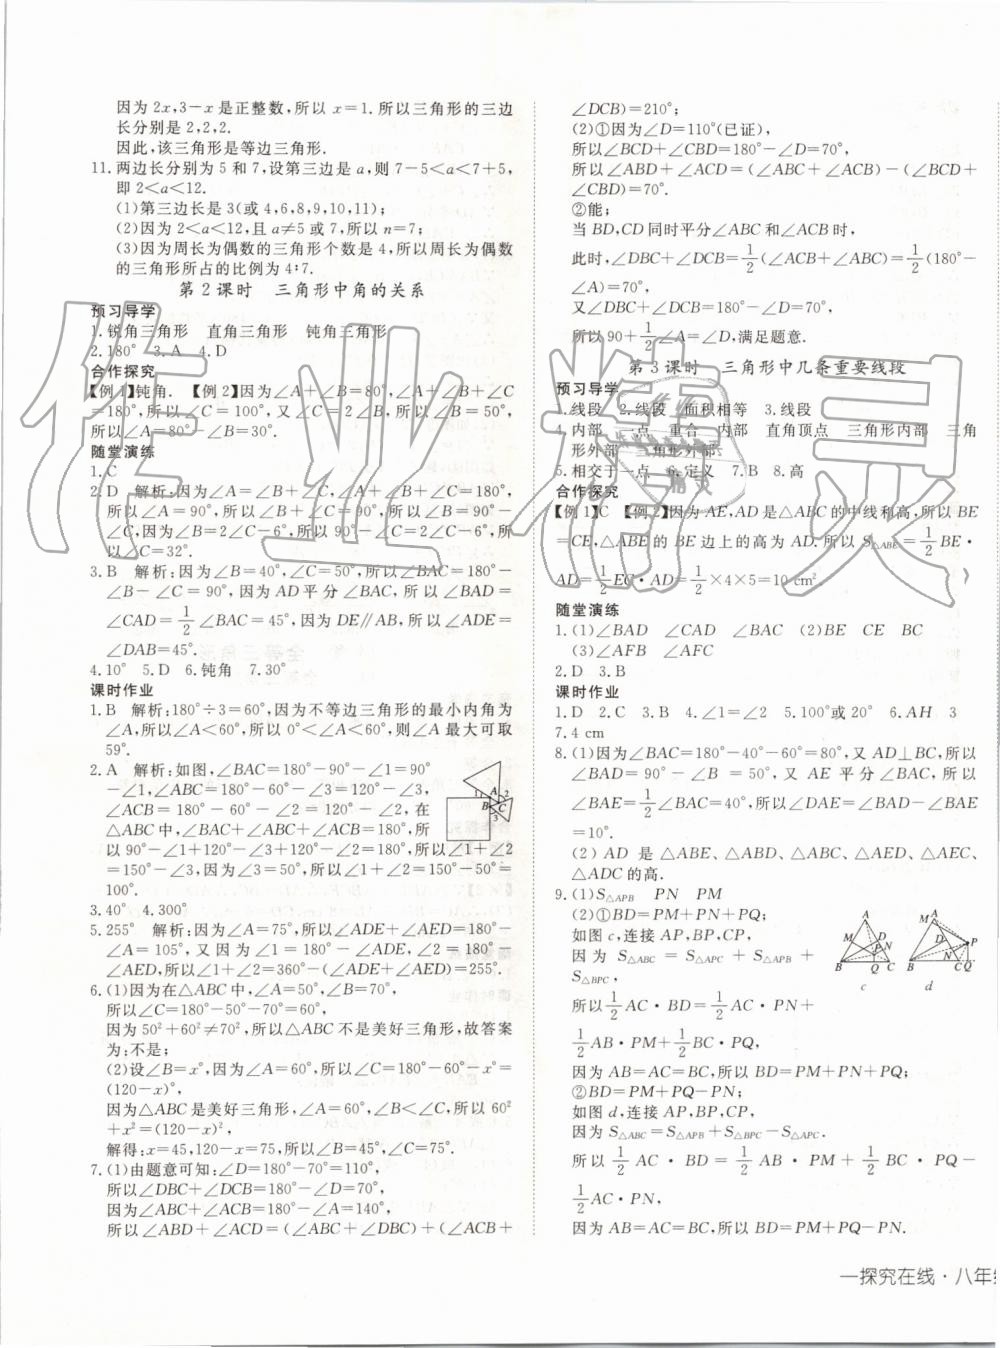 因为 2x,3-x 是正整数,所以 x=1.所以三角形的三边
长分别是 2,2,2.
因此,该三角形是等边三角形.
11.两边长分别为 5 和 7,设第三边是 a,则 7-5<a<7+5,
即 2<a<12.
(1)第三边长是 3(或 4,6,8,9,10,11);
(2)因为 2<a<12,且 a≠5 或 7,所以 n=7;
(3)因为周长为偶数的三角形个数是 4,所以周长为偶数
的三角形所占的比例为 4∶7.
第 2 课时 三角形中角的关系
预习导学
1.锐角三角形 直角三角形 钝角三角形
2.180° 3.A 4.D
合作探究
【例 1】钝角. 【例 2】因为∠A+∠B=80°,∠A+∠B+∠C
=180°,所以∠C=100°,又∠C=2∠B,所以∠B=50°,
所以∠A=80°-∠B=30°.
随堂演练
1.C
2.D 解析:因为∠A=∠B+∠C,∠A+∠B+∠C=180°,
所以∠A=90°,所以∠B+∠C=90°,所以∠B=90°-
∠C.因为∠B=2∠C-6°,所以 90°-∠C=2∠C-6°,所
以∠C=32°.
3.B 解析:因为∠B=40°,∠C=50°,所以∠BAC=180°-
∠B-∠C=90°,因为 AD 平分∠BAC,所以∠BAD=
∠CAD=1/2∠BAC=45°,因为 DE∥AB,所以∠ADE=
∠DAB=45°.
4.10° 5.D 6.钝角 7.30°
课时作业
1.B 解析:180°÷3=60°,因为不等边三角形的最小内角为
∠A,所以∠A<60°,所以 0°<∠A<60°,则∠A 最大可取
59°.
2.A 解析:如图,∠BAC=180°-90°-∠1=90°
-∠1,∠ABC=180°-60°-∠3=120°-∠3,
∠ACB=180°-60°-∠2=120°-∠2,在
△ABC 中,∠BAC+∠ABC+∠ACB=180°,所
以 90°-∠1+120°-∠3+120°-∠2=180°,所以∠1+∠2
=150°-∠3,因为∠3=50°,所以∠1+∠2=150°-50°=
100°.
1
A
2
B
C
3
3.40° 4.300°
5.255° 解析:因为∠A=75°,所以∠ADE+∠AED=180°-
∠A=105°,又因为∠1=180°-∠ADE,∠2=180°-
∠AED,所以∠1+∠2=360°-(∠ADE+∠AED)=255°.
6.(1)因为在△ABC 中,∠A=50°,∠B=70°,
所以∠C=180°-50°-70°=60°,
因为 50²+60²≠70²,所以△ABC 不是美好三角形,故答案
为:不是;
(2)设∠B=x°,因为∠A=60°,所以∠C=180°-60°-x°=
(120-x)°,
因为△ABC 是美好三角形,∠A=60°,∠B<∠C,所以 60²
+x²=(120-x)²,
解得:x=45,120-x=75,所以∠B=45°,∠C=75°.
7.(1)由题意可知:∠D=180°-70°=110°,
所以∠DBC+∠DCB=180°-∠D=70°,
因为∠ABC+∠ACB=180°-∠A=140°,
所以∠ABD+∠ACD=(∠ABC+∠DBC)+(∠ACB+
∠DCB)=210°;
(2)①因为∠D=110°(已证),
所以∠BCD+∠CBD=180°-∠D=70°,
所以∠ABD+∠ACD=(∠ABC+∠ACB)-(∠BCD+
∠CBD)=70°.
②能;
当 BD,CD 同时平分∠ABC 和∠ACB 时,
此时,∠DBC+∠DCB=1/2(∠ABC+∠ACB)=1/2(180°-
∠A)=70°,
又∠DBC+∠DCB=180°-∠D=70°,
所以 90+1/2∠A=∠D,满足题意.
第 3 课时 三角形中几条重要线段
预习导学
1.线段 2.线段 面积相等 3.线段
4.内部 一点 重合 内部 直角顶点 三角形内部 三角
形外部 三角形外部
5.相交于一点 6.定义 7.B 8.高
合作探究
【例 1】C 【例 2】因为 AE,AD 是△ABC 的中线和高,所以 BE
=CE,△ABE 的 BE 边上的高为 AD.所以 S△ABE=1/2BE·
AD=1/2EC·AD=1/2×4×5=10 cm²
随堂演练
1.(1)∠BAD ∠CAD ∠BAC (2)BE CE BC
(3)∠AFB ∠AFC
2.D 3.B
课时作业
1.D 2.C 3.B 4.∠1=∠2 5.100°或 20° 6.AH 3
7.4 cm
8.(1)因为∠BAC=180°-40°-60°=80°,又 AD⊥BC,所以
∠BAD=90°-∠B=50°,又 AE 平分∠BAC,所以
∠BAE=1/2∠BAC=40°,所以∠DAE=∠BAD-∠BAE
=10°.
(2) AD 是△ABE、△ABD、△ABC、△AED、△AEC、
△ADC 的高.
9.(1)S△APB PN PM
(2)①BD=PM+PN+PQ;
如图 c,连接 AP,BP,CP,
因为 S△ABC=S△APC+S△APB+
S△BPC,
所以1/2AC·BD=1/2AC·PN+
1/2AB·PM+1/2BC·PQ,
因为 AB=AC=BC,所以 BD=PM+PN+PQ;
②BD=PM+PQ-PN;
如图 d,连接 AP,BP,CP,
因为 S△ABC=S△APB+S△BPC-S△APC.
所以1/2AC·BD=1/2AB·PM+1/2BC·PQ-
1/2AC·PN,
因为 AB=AC=BC,所以 BD=PM+PQ-PN.
A
M
D
P
N
B
Q
C
c
M
A
D
P
N
B
C
Q
d
作业精灵
一探究在线·八年